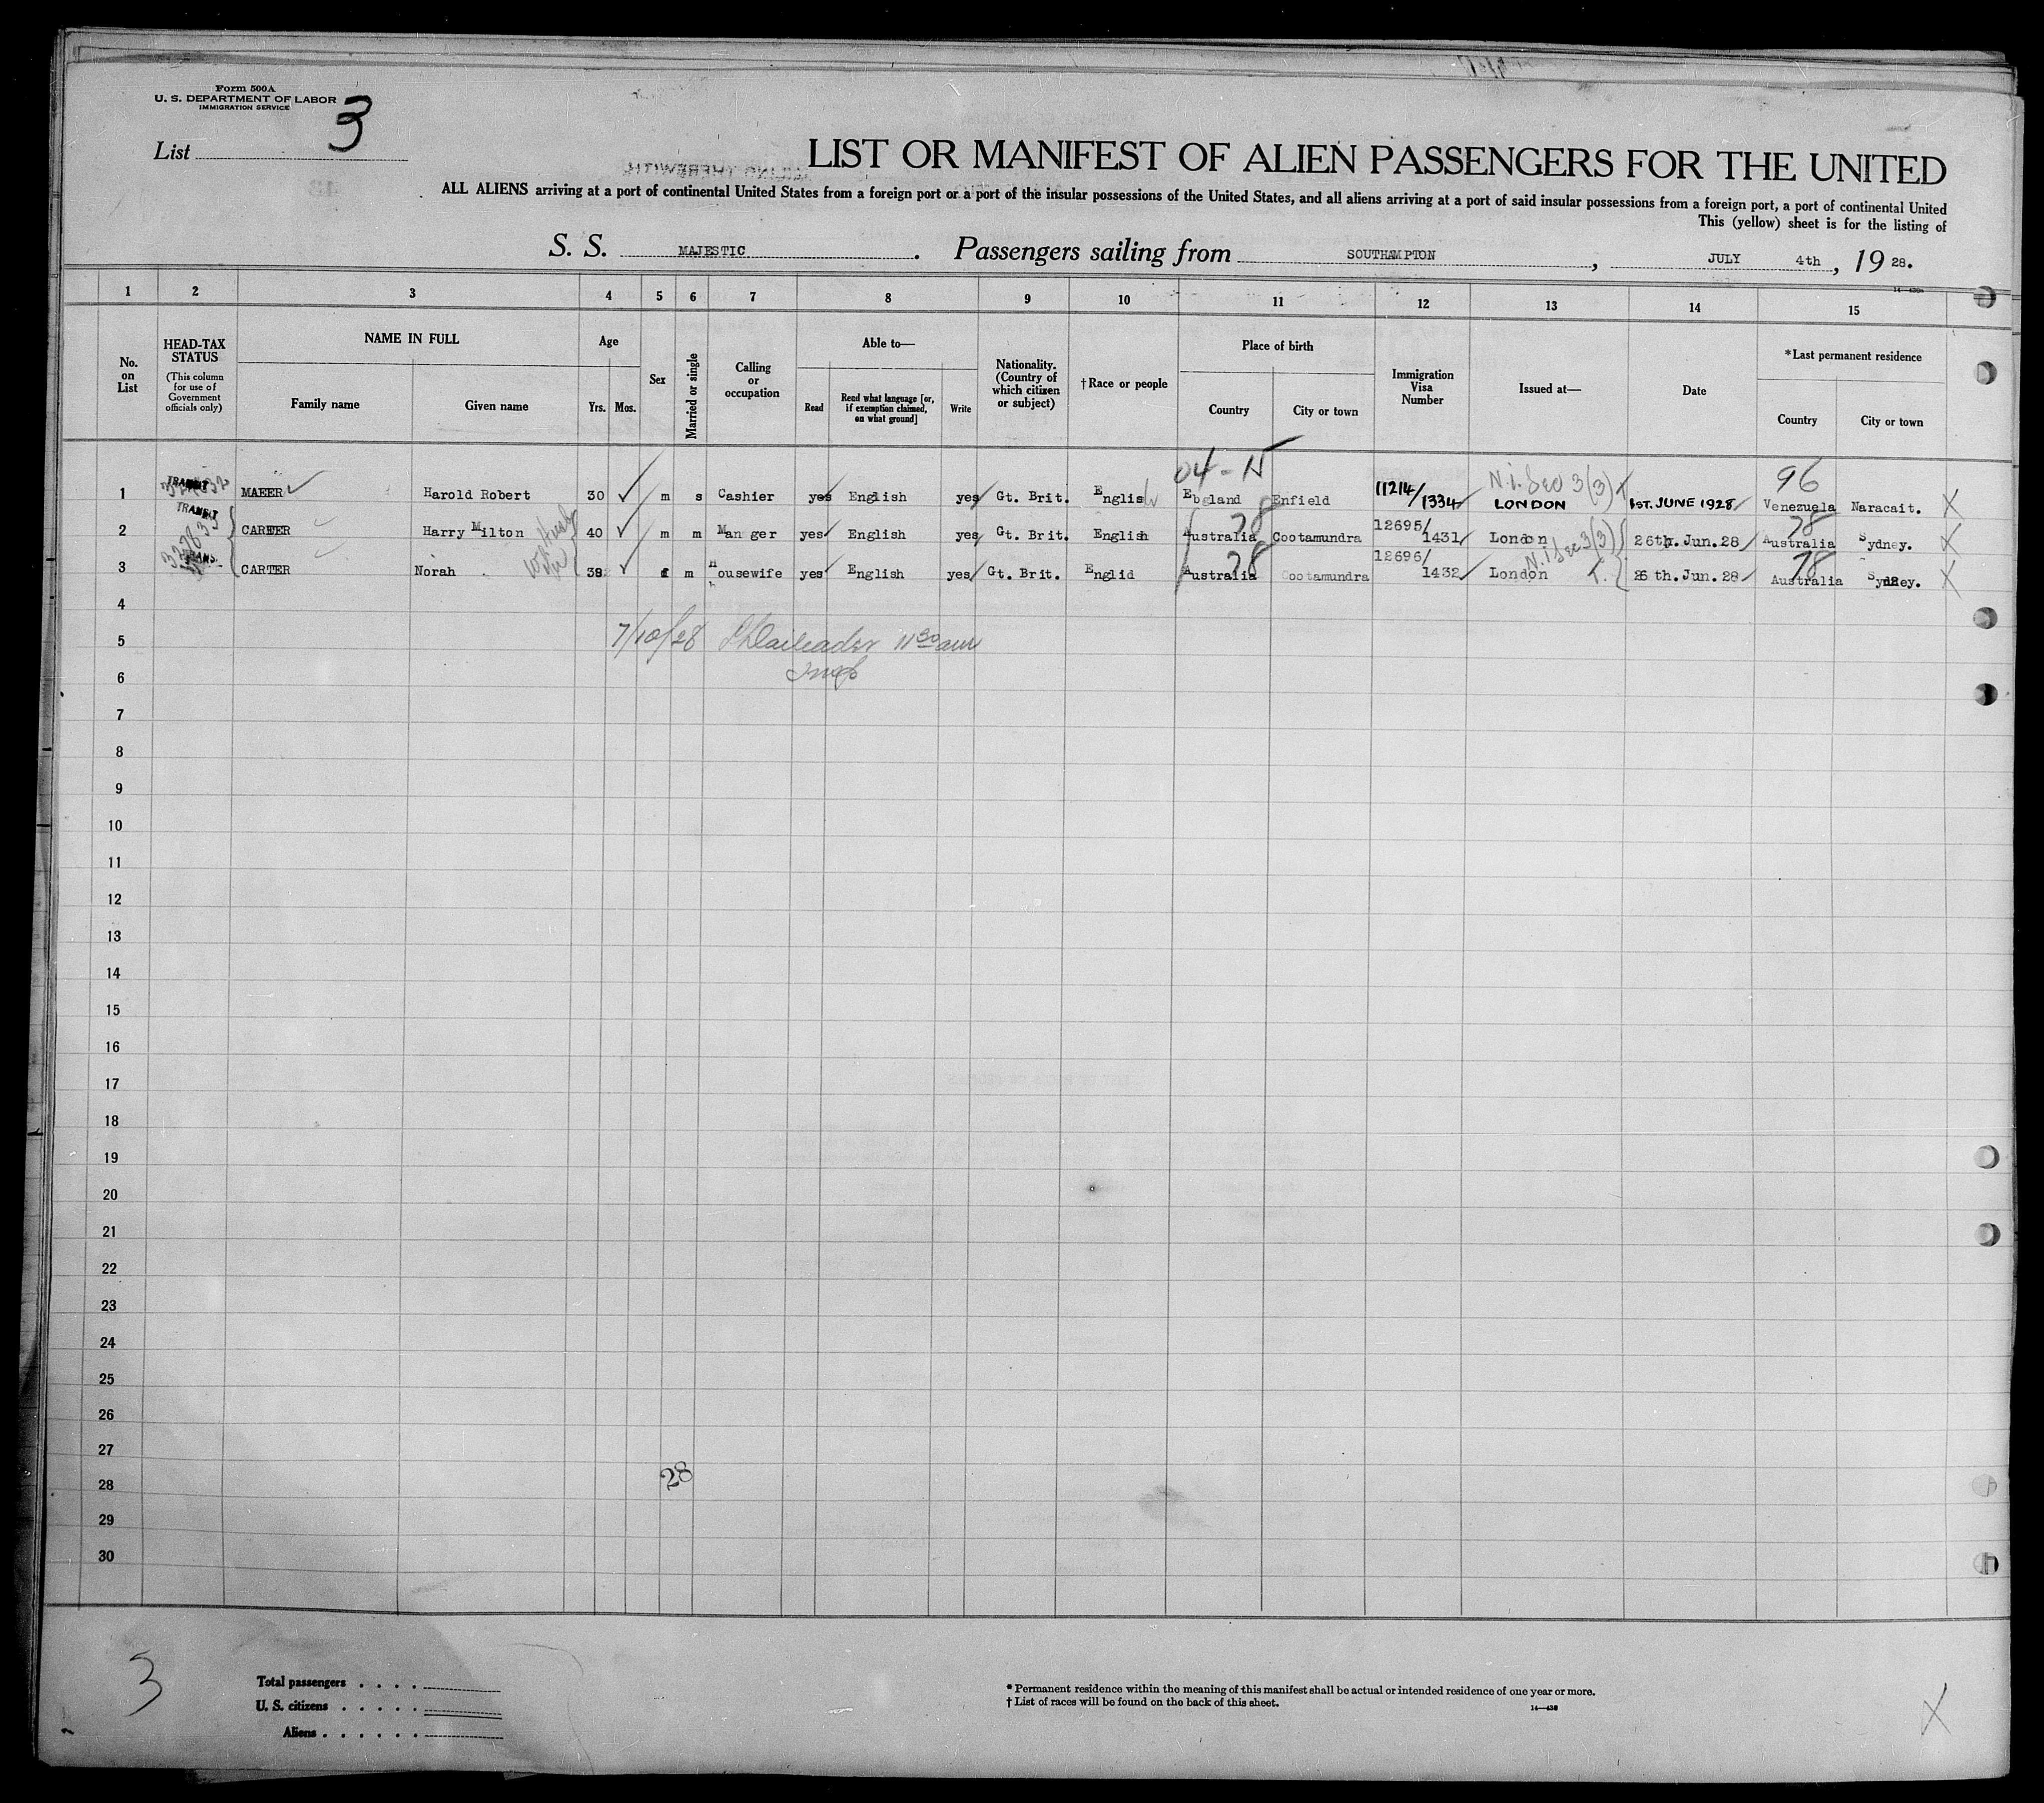 Form 500A
U. S. DEPARTMENT OF LABOR
IMMIGRATION SERVICE
List 3
LIST OR MANIFEST OF ALIEN PASSENGERS FOR THE UNITED
ALL ALIENS arriving at a port of continental United States from a foreign port or a port of the insular possessions of the United States, and all aliens arriving at a port of said insular possessions from a foreign port, a port of continental United
This (yellow) sheet is for the listing of
S. S. MAJESTIC. Passengers sailing from SOUTHAMPTON, JULY 4th, 1928.
1 2 3 4 5 6 7 8 9 10 11 12 13 14 15
No. on List
HEAD-TAX STATUS
(This column for use of Government officials only)
NAME IN FULL
Family name
Given name
Age
Yrs.
Mos.
Sex
Married or single
Calling or occupation
Able to—
Read
Read what language [or, if exemption claimed, on what ground]
Write
Nationality. (Country of which citizen or subject)
† Race or people
Place of birth
Country
City or town
Immigration Visa Number
Issued at—
Date
*Last permanent residence
Country
City or town
04-N
N.i. Sec 3(3) T
96
1 TRANSIT Harold Robert 30 m s Cashier yes English yes Gt. Brit. English England Enfield 11214/1334 LONDON 1ST. JUNE 1928 Venezuela Naracait. X
78 78
2 TRANSIT CARTER Harry Milton 40 m m Manager yes English yes Gt. Brit. English Australia Cootamundra 12695/1431 London 26th. Jun. 28 Australia Sydney. X
N.i Sec 3(3) T.
78 78
3 TRANS. CARTER Norah 38 f m Housewife yes English yes Gt. Brit. Englid Australia Cootamundra 12696/1432 London 26 th. Jun. 28 Australia Sydney. X
4
5 7/10/28 11 30 am
6 Insp
7
8
9
10
11
12
13
14
15
16
17
18
19
20
21
22
23
24
25
26
27
28 28
29
30
3
Total passengers . . . .
U. S. citizens . . . . .
Aliens . . . . . .
* Permanent residence within the meaning of this manifest shall be actual or intended residence of one year or more.
† List of races will be found on the back of this sheet.
14—438
X